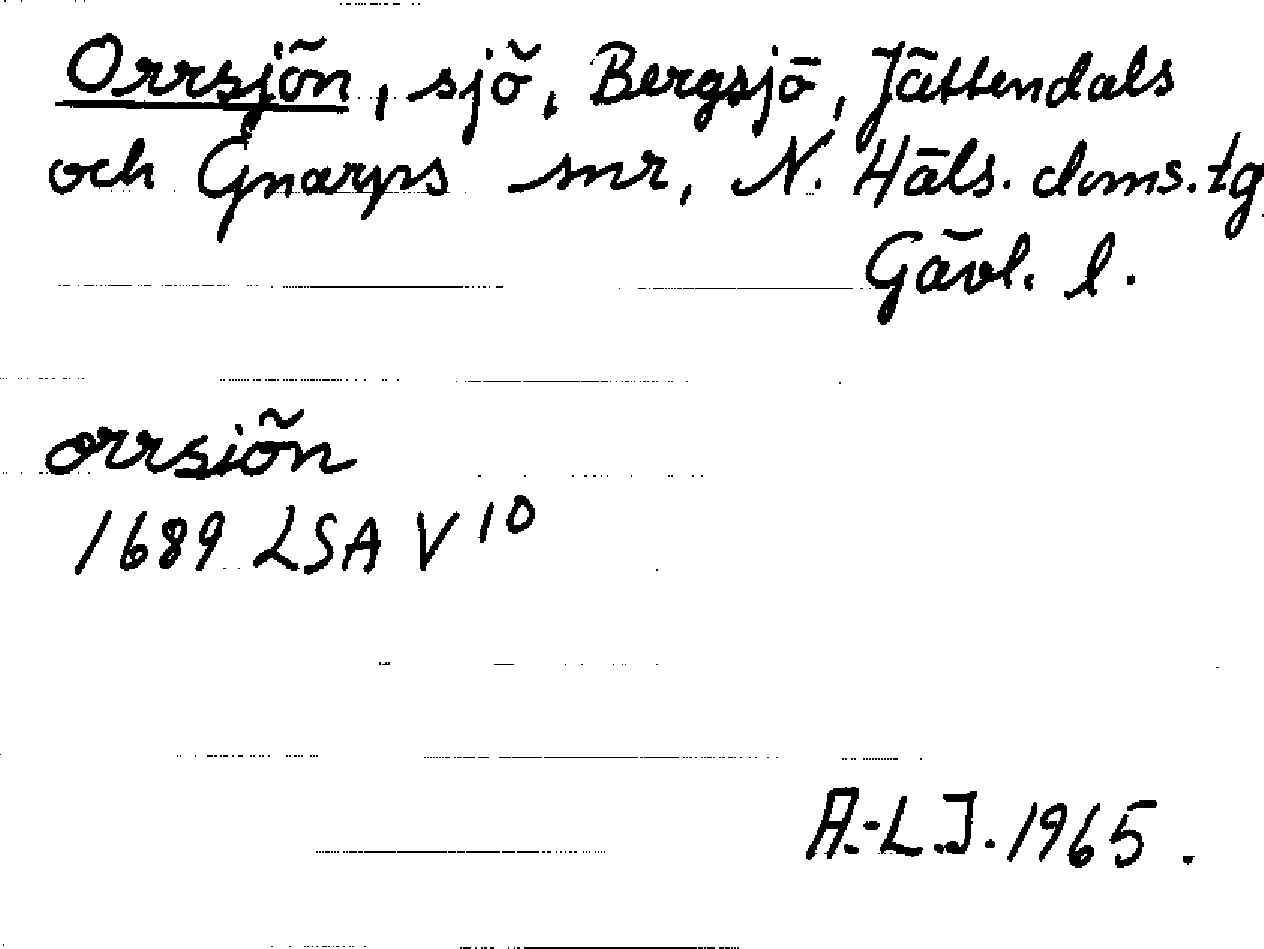 Orrsjön, sjö, Bergsjö, Jättendals
och Gnarps snr, N. Häls. doms. tg
Gävl. l.
orrsiön
1689 LSA V 10
A.-L.J. 1965.